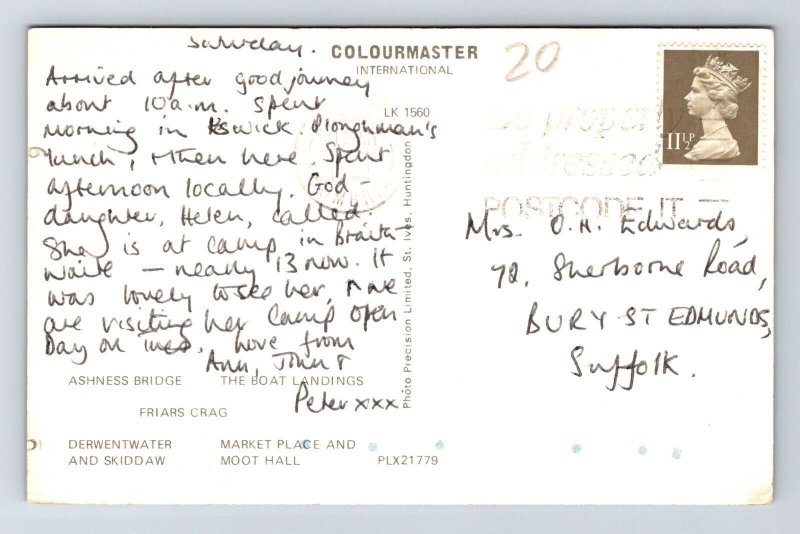 Saturday.
COLOURMASTER
INTERNATIONAL
20
LK 1560
11½P
Arrived after good journey
about 10 a.m. Spent
morning in Keswick. Ploughman's
lunch, & then here. Spent
afternoon locally. God-
daughter, Helen, called.
She is at camp in Braith-
waite – nearly 13 now. It
was lovely to see her, & we
are visiting her Camp Open
Day on Tues. Love from
Ann, John &
Peter xxx
be properly
addressed
POSTCODE IT
Mrs. O.H. Edwards,
70, Sherborne Road,
BURY ST EDMUNDS,
Suffolk.
Photo Precision Limited, St. Ives, Huntingdon
ASHNESS BRIDGE THE BOAT LANDINGS
FRIARS CRAG
DERWENTWATER MARKET PLACE AND
AND SKIDDAW MOOT HALL PLX21779